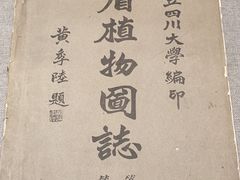 立四川大學編印
眉植物圖誌
黃季陸題